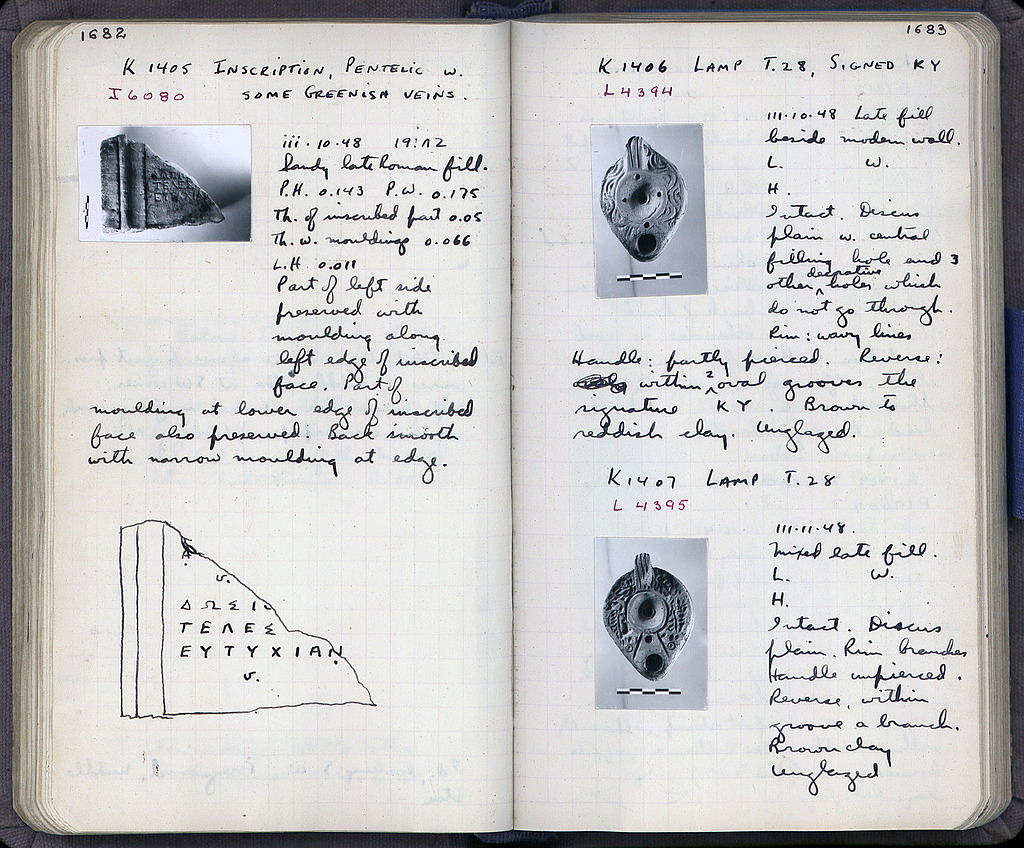 1682
K 1405 INSCRIPTION, PENTELIC W.
I 6080 SOME GREENISH VEINS.
iii·10·48 19:ΛΖ
Sandy late Roman fill.
P.H. 0.143 P.W. 0.175
Th. of inscribed part 0.05
Th. w. mouldings 0.066
L.H 0.011
Part of left side
preserved with
moulding along
left edge of inscribed
face. Part of
moulding at lower edge of inscribed
face also preserved. Back smooth
with narrow moulding at edge.
v.
ΔΩΣΙ
ΤΕΛΕΣ
ΕΥΤΥΧΙΑΝ
v.
1683
K 1406 LAMP T.28, SIGNED KY
L 4394
III·10·48 Late fill
beside modern wall.
L. W.
H.
Intact. Discus
plain w. central
filling hole and 3
other decorative holes which
do not go through.
Rim: wavy lines
Handle: partly pierced. Reverse:
within 2 oval grooves the
signature KY. Brown to
reddish clay. Unglazed.
K 1407 LAMP T.28
L 4395
III·11·48.
Mixed late fill.
L. W.
H.
Intact. Discus
plain. Rim branches
Handle unpierced.
Reverse, within
groove a branch.
Brown clay
Unglazed